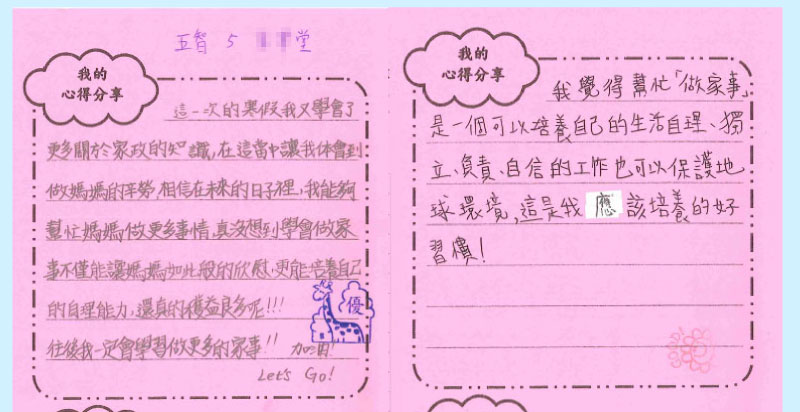 五智 5 堂
我的
心得分享
這一次的寒假我又學會了
更多關於家政的知識,在這當中讓我体會到
做媽媽的辛勞,相信在未來的日子裡,我能夠
幫忙媽媽做更多事情,真沒想到學會做家
事不僅能讓媽媽如此般的欣慰,更能培養自己
的自理能力,還真的獲益良多呢!!!
往後我一定會學習做更多的家事!! 加油!
Let's Go!
優
我的
心得分享
我覺得幫忙「做家事」
是一個可以培養自己的生活自理、獨
立、負責、自信的工作也可以保護地
球環境,這是我應該培養的好
習慣!